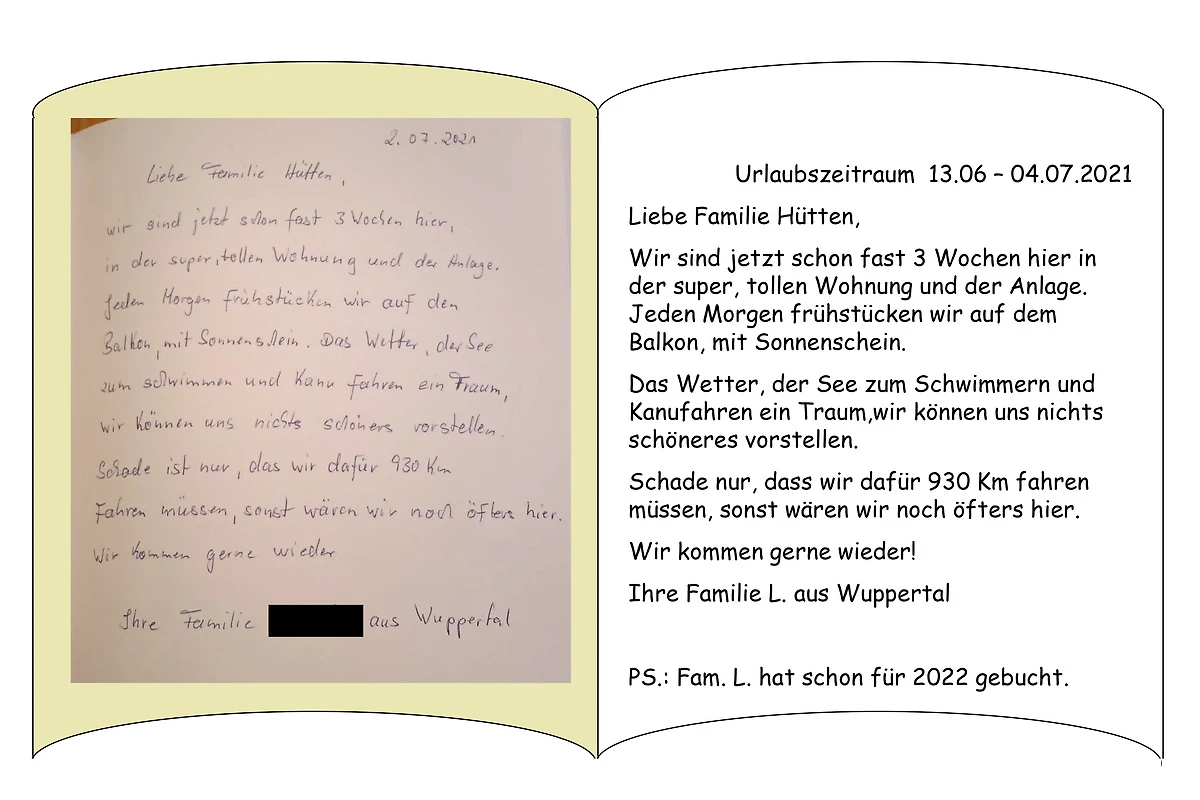 2. 07. 2021
Liebe Familie Hütten,
wir sind jetzt schon fast 3 Wochen hier,
in der super, tollen Wohnung und der Anlage.
Jeden Morgen frühstücken wir auf den
Balkon, mit Sonnenschein. Das Wetter, der See
zum schwimmen und Kanu fahren ein Traum,
wir können uns nichts schöners vorstellen.
Schade ist nur, das wir dafür 930 Km
Fahren müssen, sonst wären wir noch öfters hier.
Wir kommen gerne wieder
Ihre Familie aus Wuppertal
Urlaubszeitraum 13.06 – 04.07.2021
Liebe Familie Hütten,
Wir sind jetzt schon fast 3 Wochen hier in
der super, tollen Wohnung und der Anlage.
Jeden Morgen frühstücken wir auf dem
Balkon, mit Sonnenschein.
Das Wetter, der See zum Schwimmern und
Kanufahren ein Traum,wir können uns nichts
schöneres vorstellen.
Schade nur, dass wir dafür 930 Km fahren
müssen, sonst wären wir noch öfters hier.
Wir kommen gerne wieder!
Ihre Familie L. aus Wuppertal
PS.: Fam. L. hat schon für 2022 gebucht.